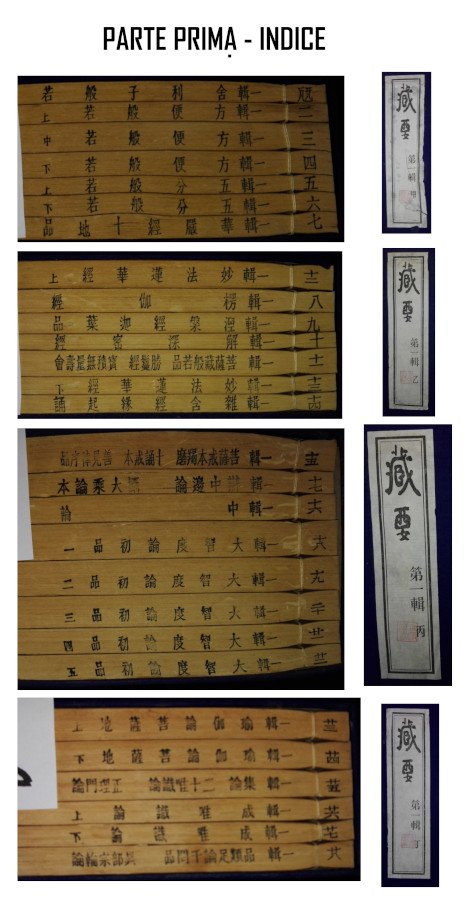 PARTE PRIMA - INDICE
一輯舍利子般若
二 一輯方便般若上
三 一輯方便般若中
四 一輯方便般若下
五 一輯五分般若上
六 一輯五分般若下
七 一輯華嚴經十地品
藏要
第一輯 甲
十二 一輯妙法蓮華經上
八 一輯楞伽經
九 一輯涅槃經迦葉品
十 一輯解深密經
十一 一輯菩薩藏般若品 勝鬘經 寶積無量壽會
十三 一輯妙法蓮華經下
十四 一輯雜含經緣起誦
藏要
第一輯 乙
十五 一輯菩薩戒本羯磨 十誦戒本 善見律序品
十七 一輯中邊論 大乘論本
十六 一輯中論
十八 一輯大智度論初品一
十九 一輯大智度論初品二
二十 一輯大智度論初品三
廿一 一輯大智度論初品四
廿二 一輯大智度論初品五
藏要
第一輯 丙
廿三 一輯瑜伽論菩薩地上
廿四 一輯瑜伽論菩薩地下
廿五 一輯集論 二十唯識論 正理門論
廿六 一輯成唯識論上
廿七 一輯成唯識論下
廿八 一輯品類足論千問品 異部宗輪論
藏要
第一輯 丁